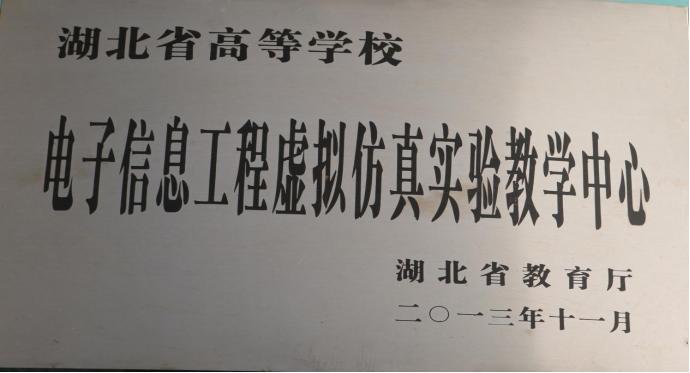 湖北省高等学校
电子信息工程虚拟仿真实验教学中心
湖北省教育厅
二〇一三年十一月